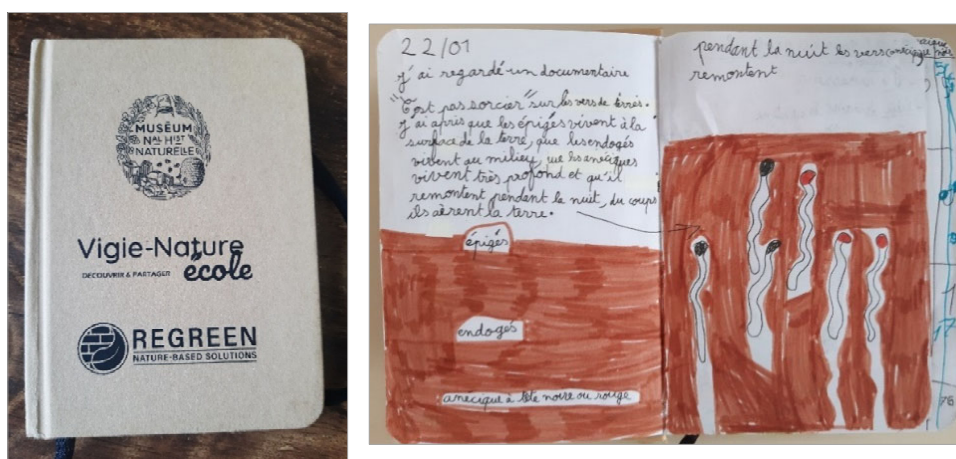 MUSÉUM
NAL HIST
NATURELLE
Vigie-Nature
DÉCOUVRIR & PARTAGER école
REGREEN
NATURE-BASED SOLUTIONS
22/01
j'ai regardé un documentaire
"C'est pas sorcier" sur les vers de terres.
j'ai appris que les épigés vivent à la
surface de la terre, que les endogés
vivent au milieu, que les anéciques
vivent très profond et qu'il
remontent pendant la nuit, du coups
ils aèrent la terre.
épigés
endogés
anécique à tête noire ou rouge
pendant la nuit les vers
remontent